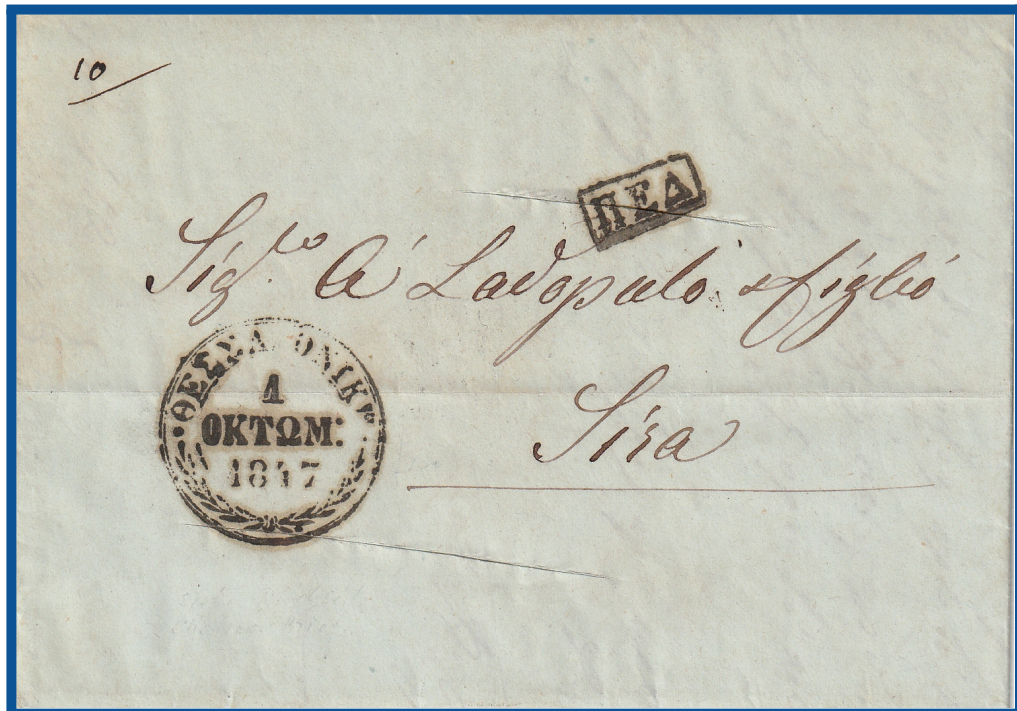 10
ΠΕΔ
Sig.ro A Ladopulo & figlio
ΘΕΣΣΑΛΟΝΙΚΗ
1
ΟΚΤΩΜ:
1847
Sira